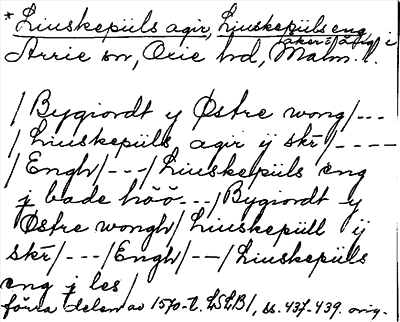 *Liuskepüls agir, Liuskepüls eng
(åker o. äng) i
Arrie sn, Oxie hd, Malm. l.
/Bygiordt y Østre wong/---
/Liuskepüls agir ÿ skr̄/----
/Engh/---/Liuskepüls eng
j bade höö---/Bygiordt y
Østre wongh/Liuskepüll ÿ
skr̄/---/Engh/--/Liuskepüls
eng j les/
förra delen av 1570-t. LSLB1, ss. 437-439. orig.